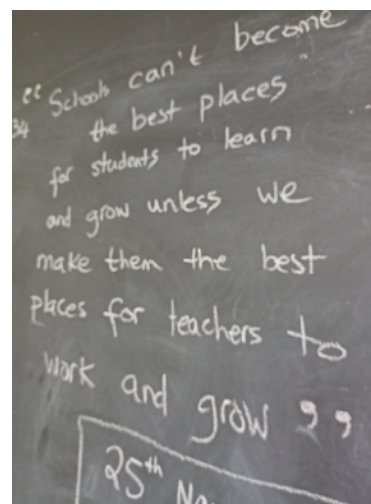 “Schools can't become
34
the best places
for students to learn
and grow unless we
make them the best
places for teachers to
work and grow ”
25th